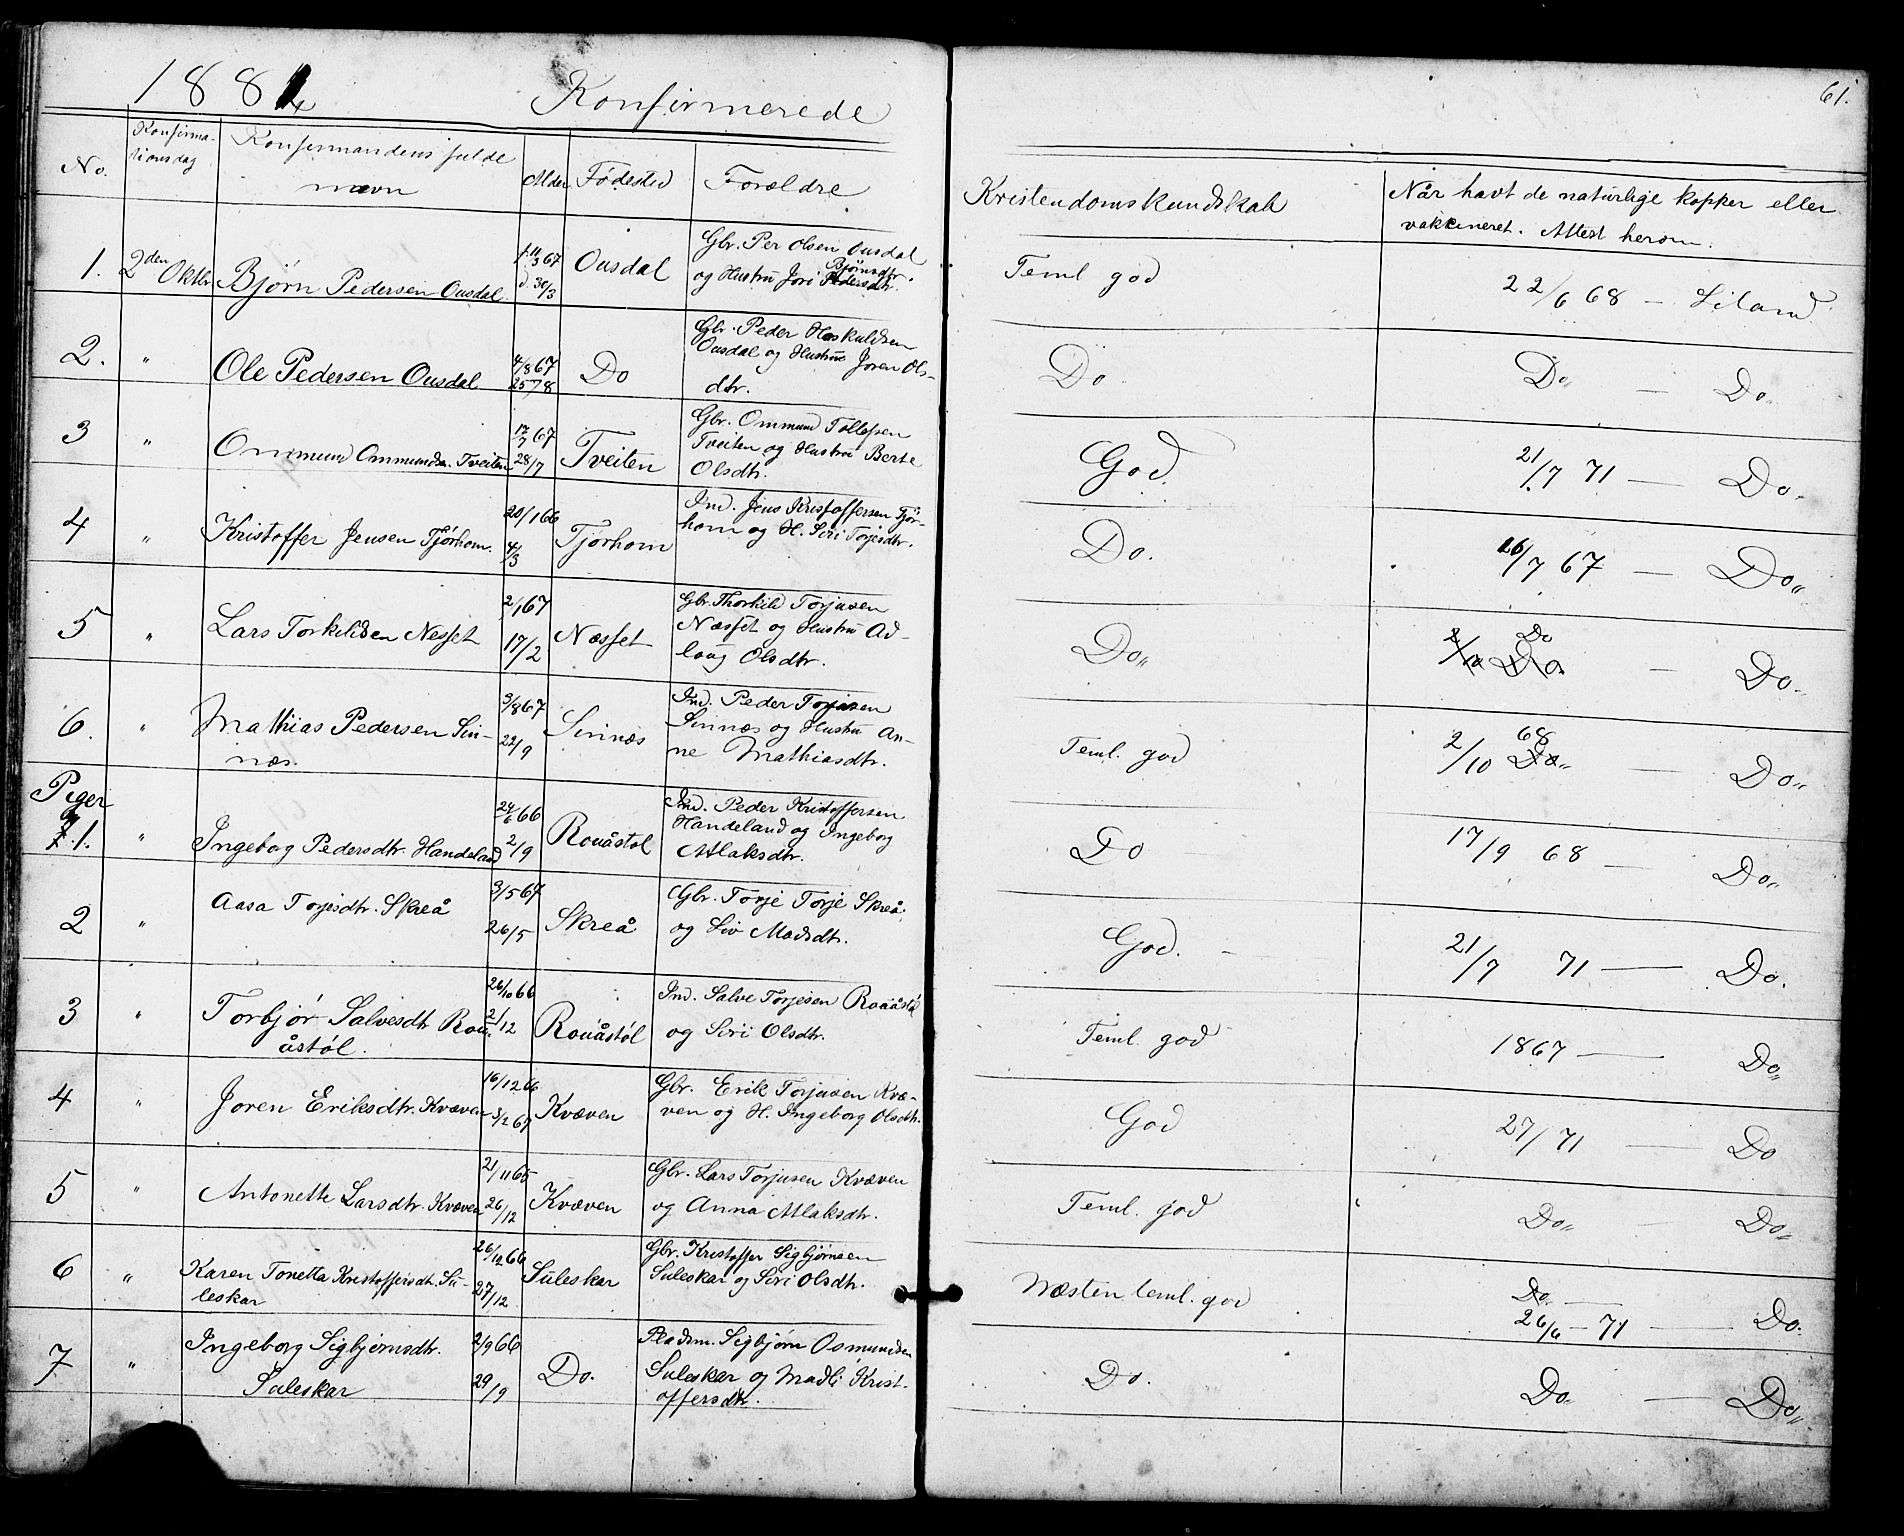 1881 Konfirmerede
61.
No. Konfirmationsdag Konfirmandens fulde navn Alder Fødested Forældre Kristendomskundskab Når havt de naturlige kopper eller vakcineret. Attest herom.
1. 2den Oktbr Bjørn Pedersen Ousdal 30/3 Ousdal Gbr. Per Olsen Ousdal
og Hustru Jori Bjørnsdtr. Teml god 22/6 68 — Liland
2. " Ole Pedersen Ousdal 4/8 67 25/8 Do Gbr. Peder Haskuldsen
Ousdal og Hustru Joren Ols-
dtr. Do Do — Do
3 " Ommund Ommundsn. Tveiten 17/7 67 28/7 Tveiten Gbr. Ommund Tollefsen
Tveiten og Hustru Berte
Olsdtr. God 21/7 71 — Do.
4 " Kristoffer Jensen Tjørhom. 20/1 66 4/3 Tjørhom Ind. Jens Kristoffersen Tjør-
hom og H. Siri Torjesdtr. Do. 16/7 67 — Do
5 " Lars Torkildsen Nesset 2/1 67 17/2 Næsset Gbr. Thorkild Torjusen
Næsset og Hustru Ad-
loug Olsdtr. Do Do — Do
6. " Mathias Pedersen Sin-
næs. 3/8 67 22/9 Sinnæs Ind. Peder Torjusen
Sinnæs og Hustru An-
ne Mathiasdtr. Teml. god 2/10 68 Do
Piger
1. " Ingeborg Pedersdtr. Handeland 24/6 66 2/9 Rouåstøl Ind. Peder Kristoffersen
Handeland og Ingeborg
Atlaksdtr. Do 17/9 68 — Do
2 " Aasa Torjesdtr. Skreå 3/5 67 26/5 Skreå Gbr. Torje Torje Skreå
og Siv Madsdtr. God. 21/7 71 — Do.
3 " Torbjør Salvesdtr Rou-
åstøl. 26/10 66 2/12 Rouåstøl Ind. Salve Torjesen Rouåstøl
og Siri Olsdtr. Teml. god 1867 — Do
4 " Joren Eriksdtr. Kvæven 16/12 66 3/2 67 Kvæven Gbr. Erik Torjusen Kvæ-
ven og H. Ingeborg Olsdtr. God 27/ 71 — Do
5 " Antonette Larsdtr. Kvæven 21/11 65 26/12 Kvæven Gbr. Lars Torjusen Kvæven
og Anna Atlaksdtr. Teml. god Do — Do
6 " Karen Tonetta Kristoffersdtr. Su-
leskar 26/12 66 27/12 Suleskar Gbr. Kristoffer Sigbjørnsen
Suleskar og Siri Olsdtr. Næsten teml. god 26/6 — 71 — Do.
7 " Ingeborg Sigbjørnsdtr.
Suleskar 2/9 66 29/9 Do. Pladsm. Sigbjørn Osmundsen
Suleskar og Madli Krist-
offersdtr. Do. Do — Do